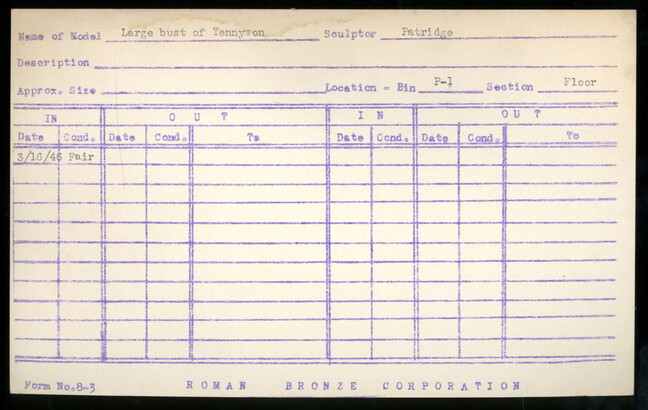 Name of Model Large bust of Tennyson Sculptor Patridge
Description
Approx. Size Location - Bin P-1 Section Floor
IN OUT IN OUT
Date Cond. Date Cond. To Date Cond. Date Cond. To
3/16/46 Fair
Form No.8-3 ROMAN BRONZE CORPORATION